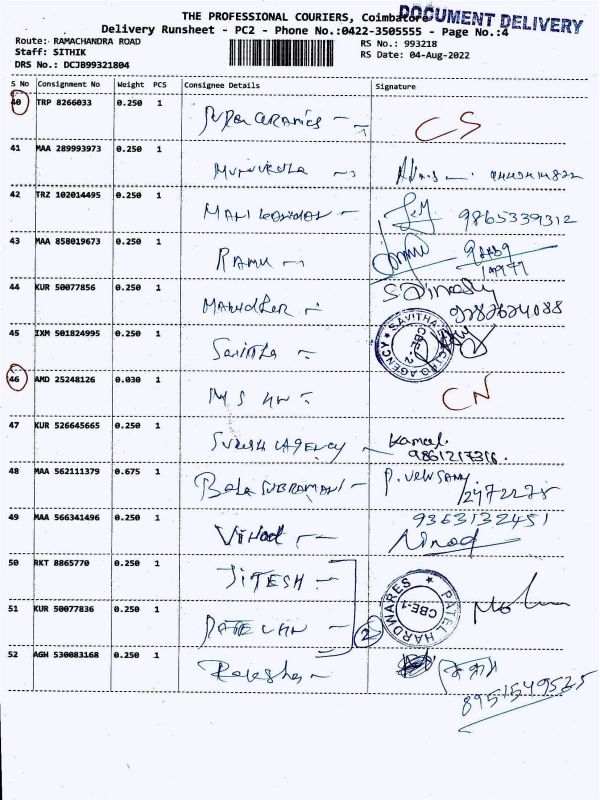 THE PROFESSIONAL COURIERS, Coimbatore
DOCUMENT DELIVERY
Delivery Runsheet - PC2 - Phone No.:0422-3505555 - Page No.:4
Route: RAMACHANDRA ROAD
RS No.: 993218
Staff: SITHIK
RS Date: 04-Aug-2022
DRS No.: DCJB99321804
S No Consignment No Weight PCS Consignee Details Signature
40 TRP 8266033 0.250 1 CERAMICS CS
41 MAA 289993973 0.250 1
42 TRZ 102014495 0.250 1 9865339312
43 MAA 858019673 0.250 1 RAMU
44 KUR 50077856 0.250 1 S Dinesh
45 IXM 501824995 0.250 1 Savitha SAVITHA AGENCY CBE-2
46 AMD 25248126 0.030 1 CN
47 KUR 526645665 0.250 1 SURESH AGENCY Kamal
48 MAA 562111379 0.675 1 BALA SUBRAMANI P. VELUSAMY
49 MAA 566341496 0.250 1 Vinod 9363132451
Vinod
50 RKT 8865770 0.250 1 JITESH
51 KUR 50077836 0.250 1 2 PATEL HARDWARES CBE-1
52 AGH 530083168 0.250 1
8951549525